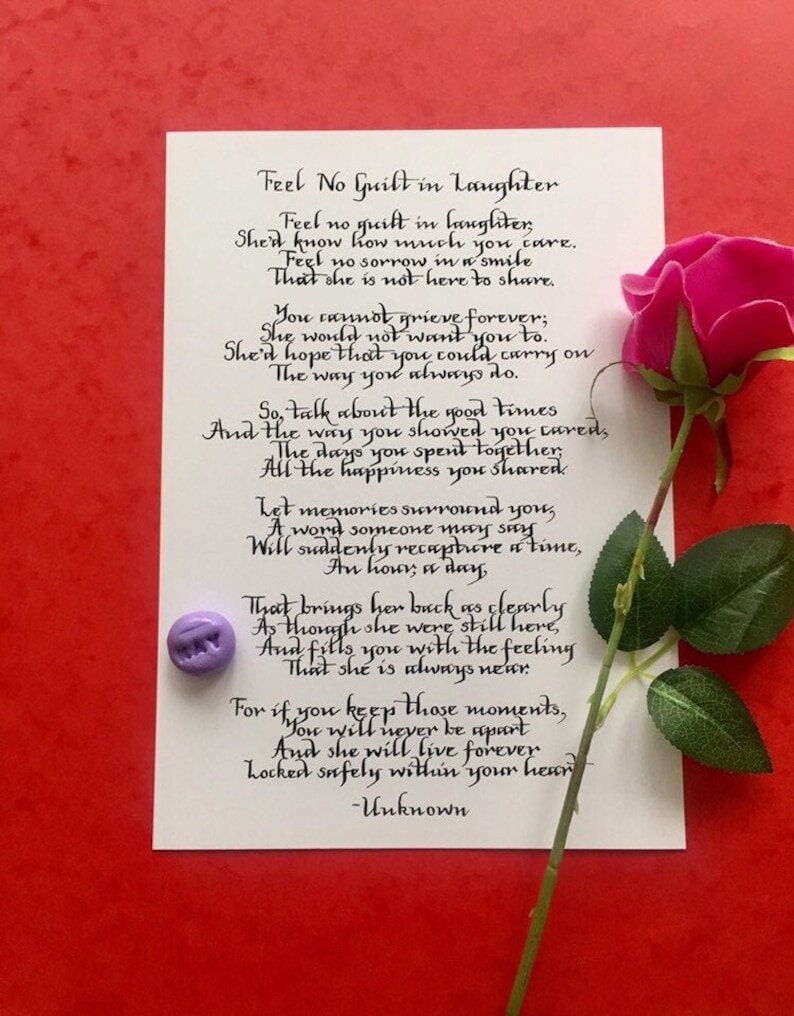 Feel No Guilt in Laughter
Feel no guilt in laughter,
She'd know how much you care.
Feel no sorrow in a smile
That she is not here to share.
You cannot grieve forever;
She would not want you to.
She'd hope that you could carry on
The way you always do.
So, talk about the good times
And the way you showed you cared,
The days you spent together,
All the happiness you shared.
Let memories surround you,
A word someone may say
Will suddenly recapture a time,
An hour, a day,
That brings her back as clearly
As though she were still here,
And fills you with the feeling
That she is always near.
For if you keep those moments,
You will never be apart
And she will live forever
Locked safely within your heart
-Unknown
KAY